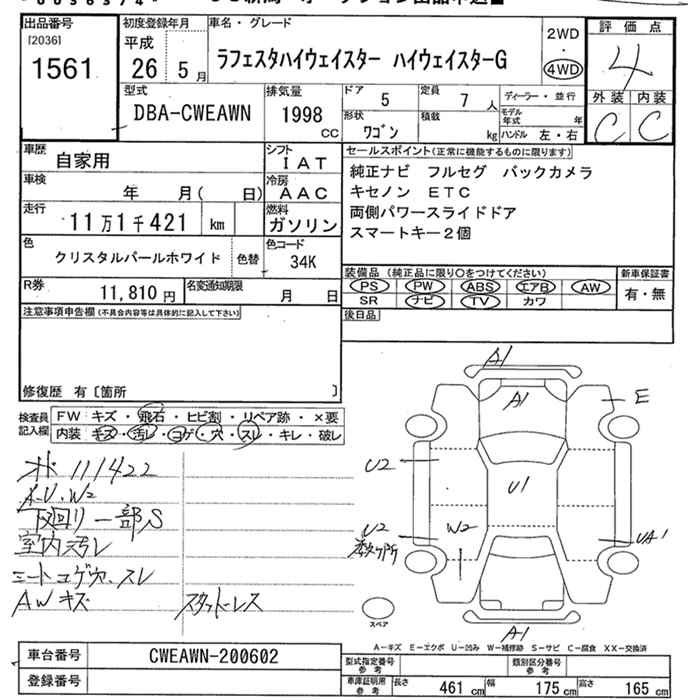 出品番号
[2036]
1561
初度登録年月
平成
26 5月
車名・グレード
ラフェスタハイウェイスター ハイウェイスターG
2WD
・
4WD
評価点
4
外装 内装
C C
型式
DBA-CWEAWN
排気量
1998
CC
ドア
5
定員
7 人
ディーラー・並行
モデル年式 年
形状
ワゴン
積載
kg
ハンドル 左・右
車歴
自家用
シフト
IAT
車検
年 月( 日)
冷房
AAC
走行
11万1千421 km
燃料
ガソリン
色
クリスタルパールホワイト
色替
色コード
34K
R券
11,810 円
名変通知期限
月 日
セールスポイント(正常に機能するものに限ります)
純正ナビ フルセグ バックカメラ
キセノン ETC
両側パワースライドドア
スマートキー2個
装備品(純正品に限り○をつけてください)
PS PW ABS エアB AW
SR ナビ TV カワ
新車保証書
有・無
後日品
注意事項申告欄(不具合内容等は具体的に記入して下さい)
修復歴 有〔箇所 〕
検査員
記入欄
FW キズ・飛石・ヒビ割・リペア跡・×要
内装 キズ・汚レ・コゲ・穴・スレ・キレ・破レ
オド 111422
A・U・W2
下回り一部S
室内汚レ
シートコゲ穴、スレ
AWキズ スタッドレス
A1
A1
E
U2
U1
U2
W2
UA1
A1
スペア
A-キズ E-エクボ U-凹み W-補修跡 S-サビ C-腐食 XX-交換済
車台番号
CWEAWN-200602
登録番号
型式指定番号
参考
類別区分番号
参考
車庫証明用
参考
長さ 461 cm
幅 175 cm
高さ 165 cm